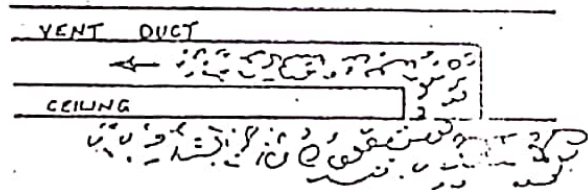 VENT DUCT
CEILING